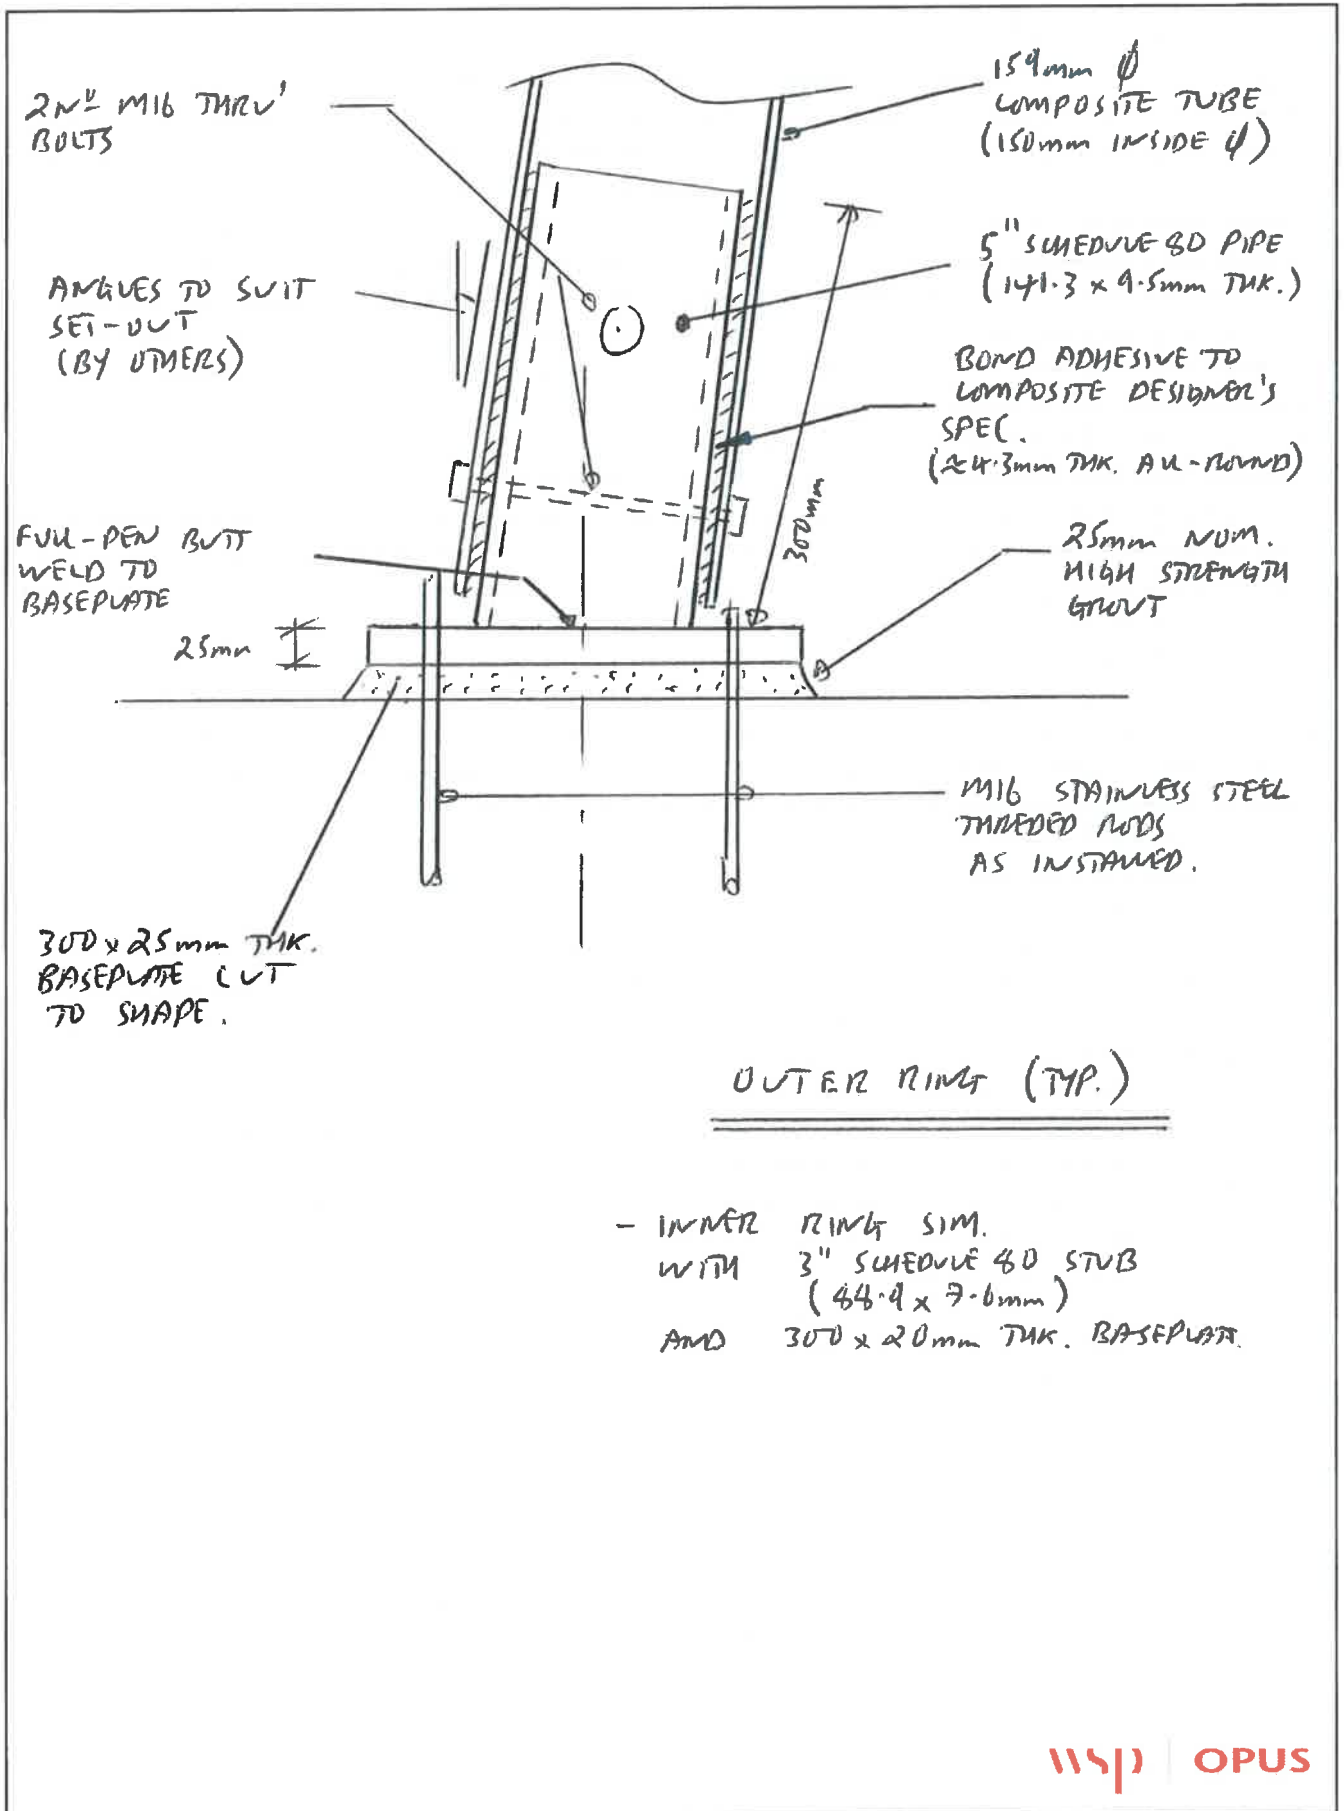 2Nº M16 THRU'
BOLTS
159mm Ø
COMPOSITE TUBE
(150mm INSIDE Ø)
ANGLES TO SUIT
SET-OUT
(BY OTHERS)
5" SCHEDULE 80 PIPE
(141.3 x 9.5mm THK.)
BOND ADHESIVE TO
COMPOSITE DESIGNER'S
SPEC.
(≈4.3mm THK. ALL-ROUND)
300mm
FULL-PEN BUTT
WELD TO
BASEPLATE
25mm
25mm NOM.
HIGH STRENGTH
GROUT
M16 STAINLESS STEEL
THREDED RODS
AS INSTALLED.
300 x 25mm THK.
BASEPLATE CUT
TO SHAPE.
OUTER RING (TYP.)
- INNER RING SIM.
WITH 3" SCHEDULE 80 STUB
(88.9 x 7.6mm)
AND 300 x 20mm THK. BASEPLATE.
wsp | OPUS